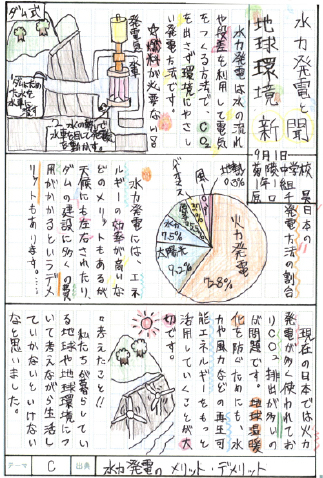 水力発電と
地球環境新聞
9月1日
ダム式
発電機
水車
ダムにためた水を水車に流す
水の勢いで水車を回して発電を動かす。
水力発電は水の流れ
や段差を利用して電気
をつくる方法で、CO₂
を出さず環境にやさし
い発電方法です。
燃料が必要ない
日本の
発電方法の割合
火力発電
78%
太陽光
9.2%
水力
7.5%
バイオマス
風力
地熱
0.3%
水力発電には、エネ
ルギーの効率が高いな
どのメリットもあるけど、
天候にも左右されたり、
ダムの建設に多くの費
用がかかるというデメ
リットもあります。
現在の日本では火力
発電が多く使われてお
りCO₂排出が多いの
が問題です。地球温暖
化を防ぐためにも、水
力や風力などの再生可
能エネルギーをもっと
活用していくことが大
切です。
考えたこと!!
私たちが暮らしてい
る地球や地球環境につ
いて考えながら生活し
ていかないといけない
なと思いました。
テーマ
C
出典
水力発電のメリット・デメリット